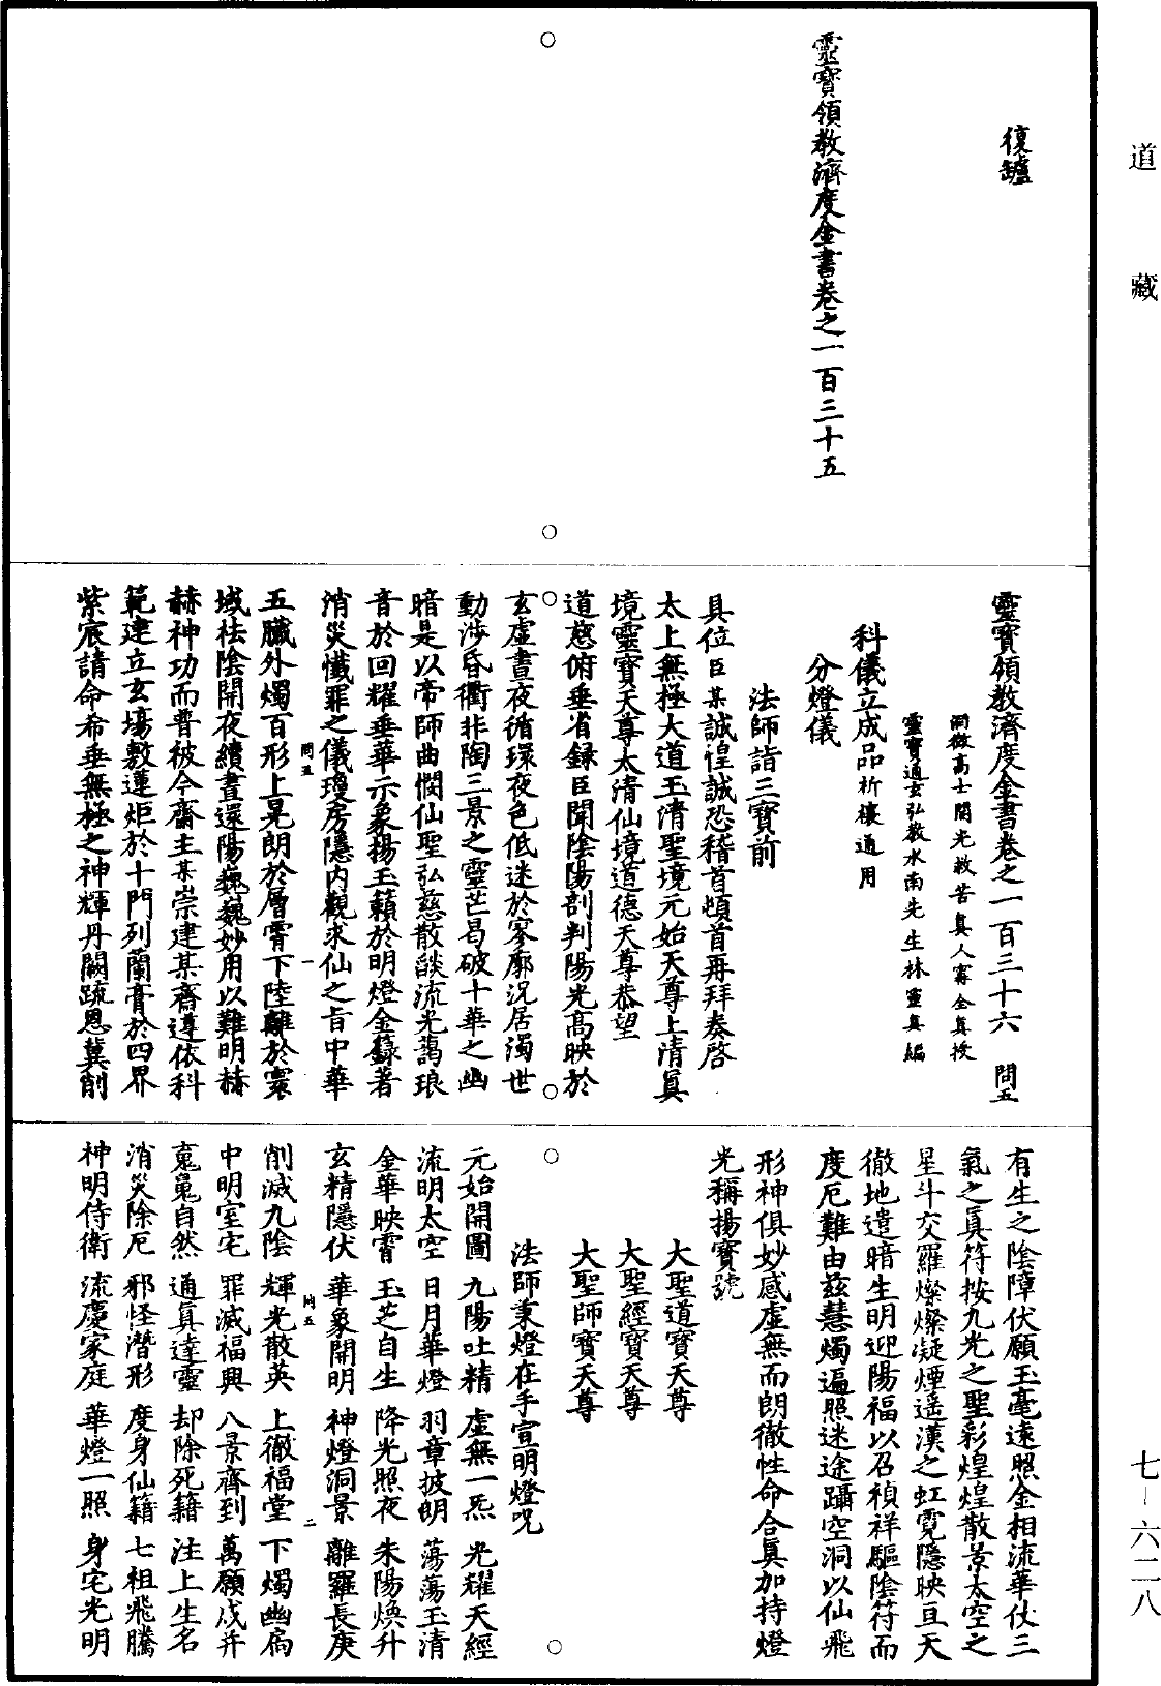 道藏
七—六二八
復罏
靈寶領教濟度金書卷之一百三十五
靈寶領教濟度金書卷之一百三十六　問五
洞微高士開光救苦真人甯全真授
靈寶通玄弘教水南先生林靈真編
科儀立成品祈禳通用
分燈儀
法師詣三寶前
具位臣某誠惶誠恐稽首頓首再拜奏啓
太上無極大道玉清聖境元始天尊上清眞
境靈寶天尊太清仙境道德天尊恭望
道慈俯垂省録臣聞陰陽剖判陽光高映於
玄虛晝夜循環夜色低迷於寥廓況居濁世
動渉昏衢非陶三景之靈芒曷破十華之幽
暗是以帝師曲憫仙聖弘慈散燄流光蕩琅
音於回耀垂華示象揚玉籟於明燈金籙著
消災懺罪之儀瓊房隱内觀求仙之旨中華
問五　一
五臟外燭百形上晃朗於層霄下陸離於寰
域祛陰開夜續晝還陽巍巍妙用以難明赫
赫神功而普被今齋主某崇建某齋遵依科
範建立玄壇敷蓮炬於十門列蘭膏於四界
紫宸請命希垂無極之神輝丹闕疏恩冀削
有生之陰障伏願玉毫遠照金相流華仗三
氣之眞符按九光之聖彩煌煌散景太空之
星斗交羅燦燦凝煙遥漢之虹霓隱映亘天
徹地遣暗生明迎陽福以召禎祥驅陰符而
度厄難由茲慧燭遍照迷途躡空洞以仙飛
形神俱妙感虛無而朗徹性命合眞加持燈
光稱揚寶號
大聖道寶天尊
大聖經寶天尊
大聖師寶天尊
法師秉燈在手宣明燈咒
元始開圖　九陽吐精　虛無一炁　光耀天經
流明太空　日月華燈　羽章披朗　蕩蕩玉清
金華映霄　玉芝自生　降光照夜　朱陽煥升
玄精隱伏　華象開明　神燈洞景　離羅長庚
問五　二
削滅九陰　輝光散英　上徹福堂　下燭幽扃
中明室宅　罪滅福興　八景齊到　萬願成并
䰟䰟自然　通眞達靈　却除死籍　注上生名
消災除厄　邪怪潛形　度身仙籍　七祖飛騰
神明侍衛　流慶家庭　華燈一照　身宅光明